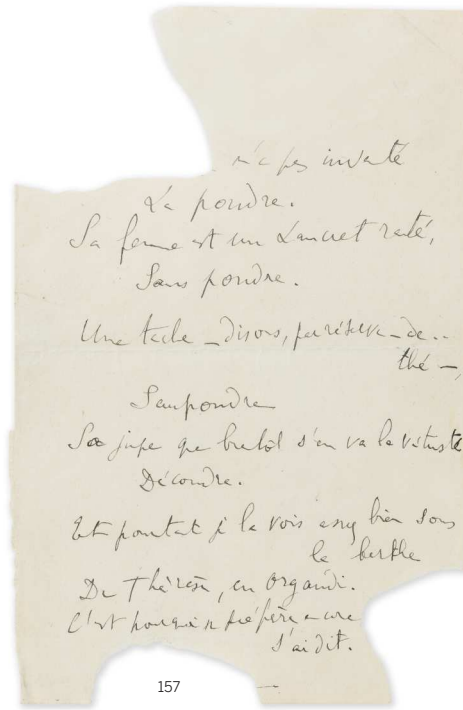 n'a pas inventé
La poudre.
Sa femme est un Lancret raté,
Sans poudre.
Une tache _ disons, par réserve _ de..
thé —,
Saupoudre
Sa jupe que bientôt s'en va la vétusté
Découdre.
Et pourtant je la vois assez bien sous
la berthe
De Thérèse, en organdi.
C'est pourquoi je préfère encore
J'ai dit.
157